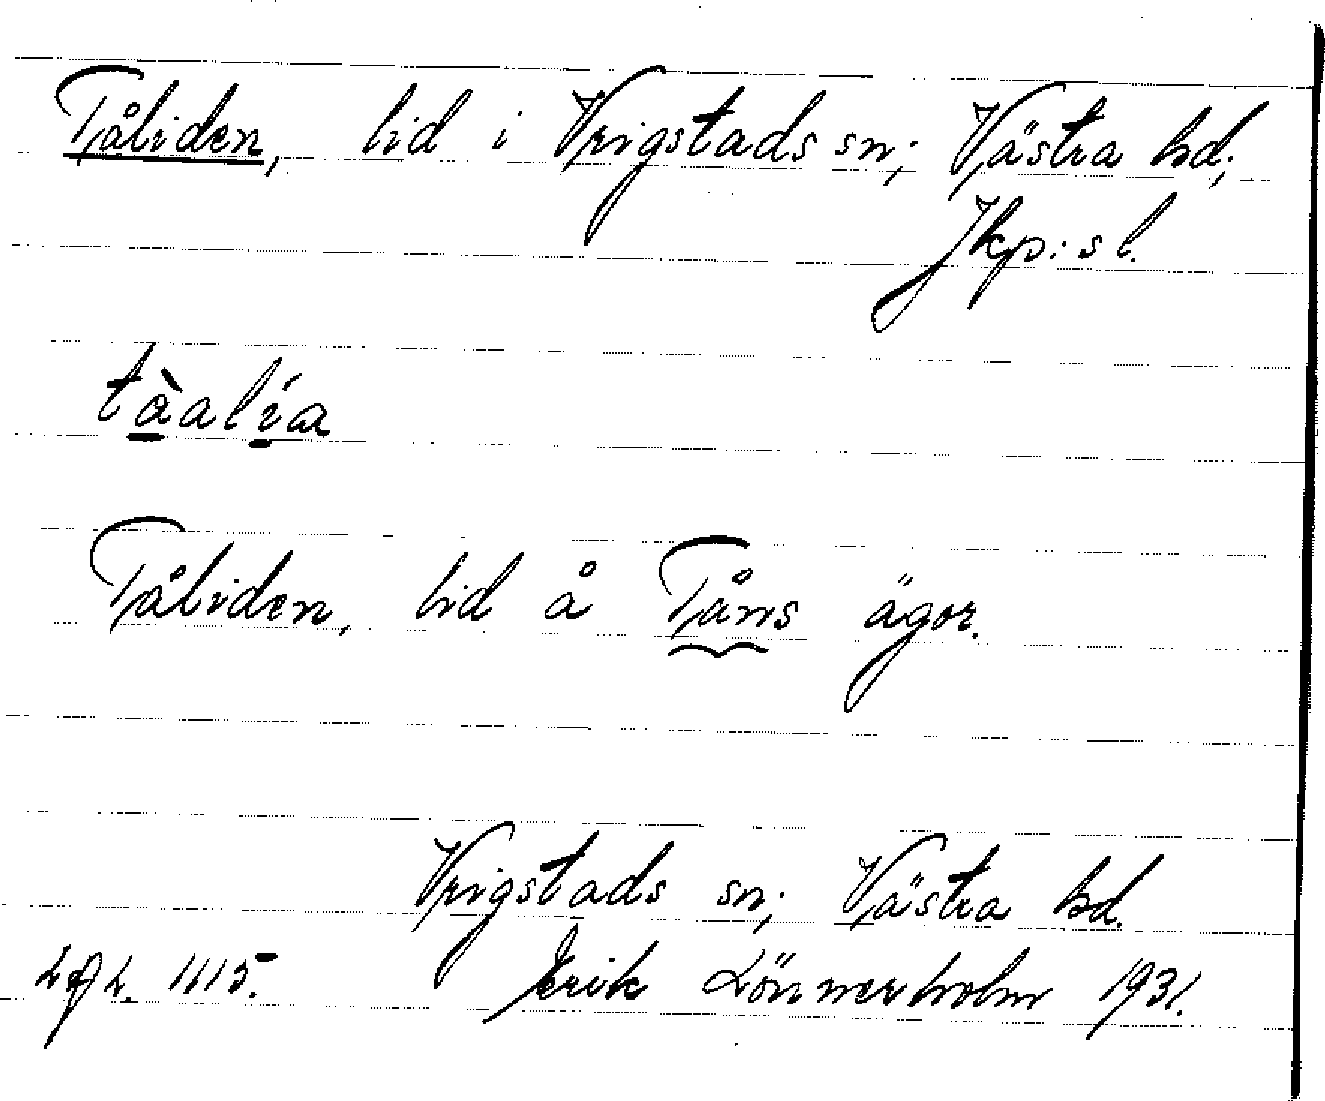 Tåliden, lid i Vrigstads sn; Västra hd;
Jkp:s l.
tàalía
Tåliden, lid å Tåns ägor.
Vrigstads sn; Västra hd.
1115. Erik Lönnerholm 1931.